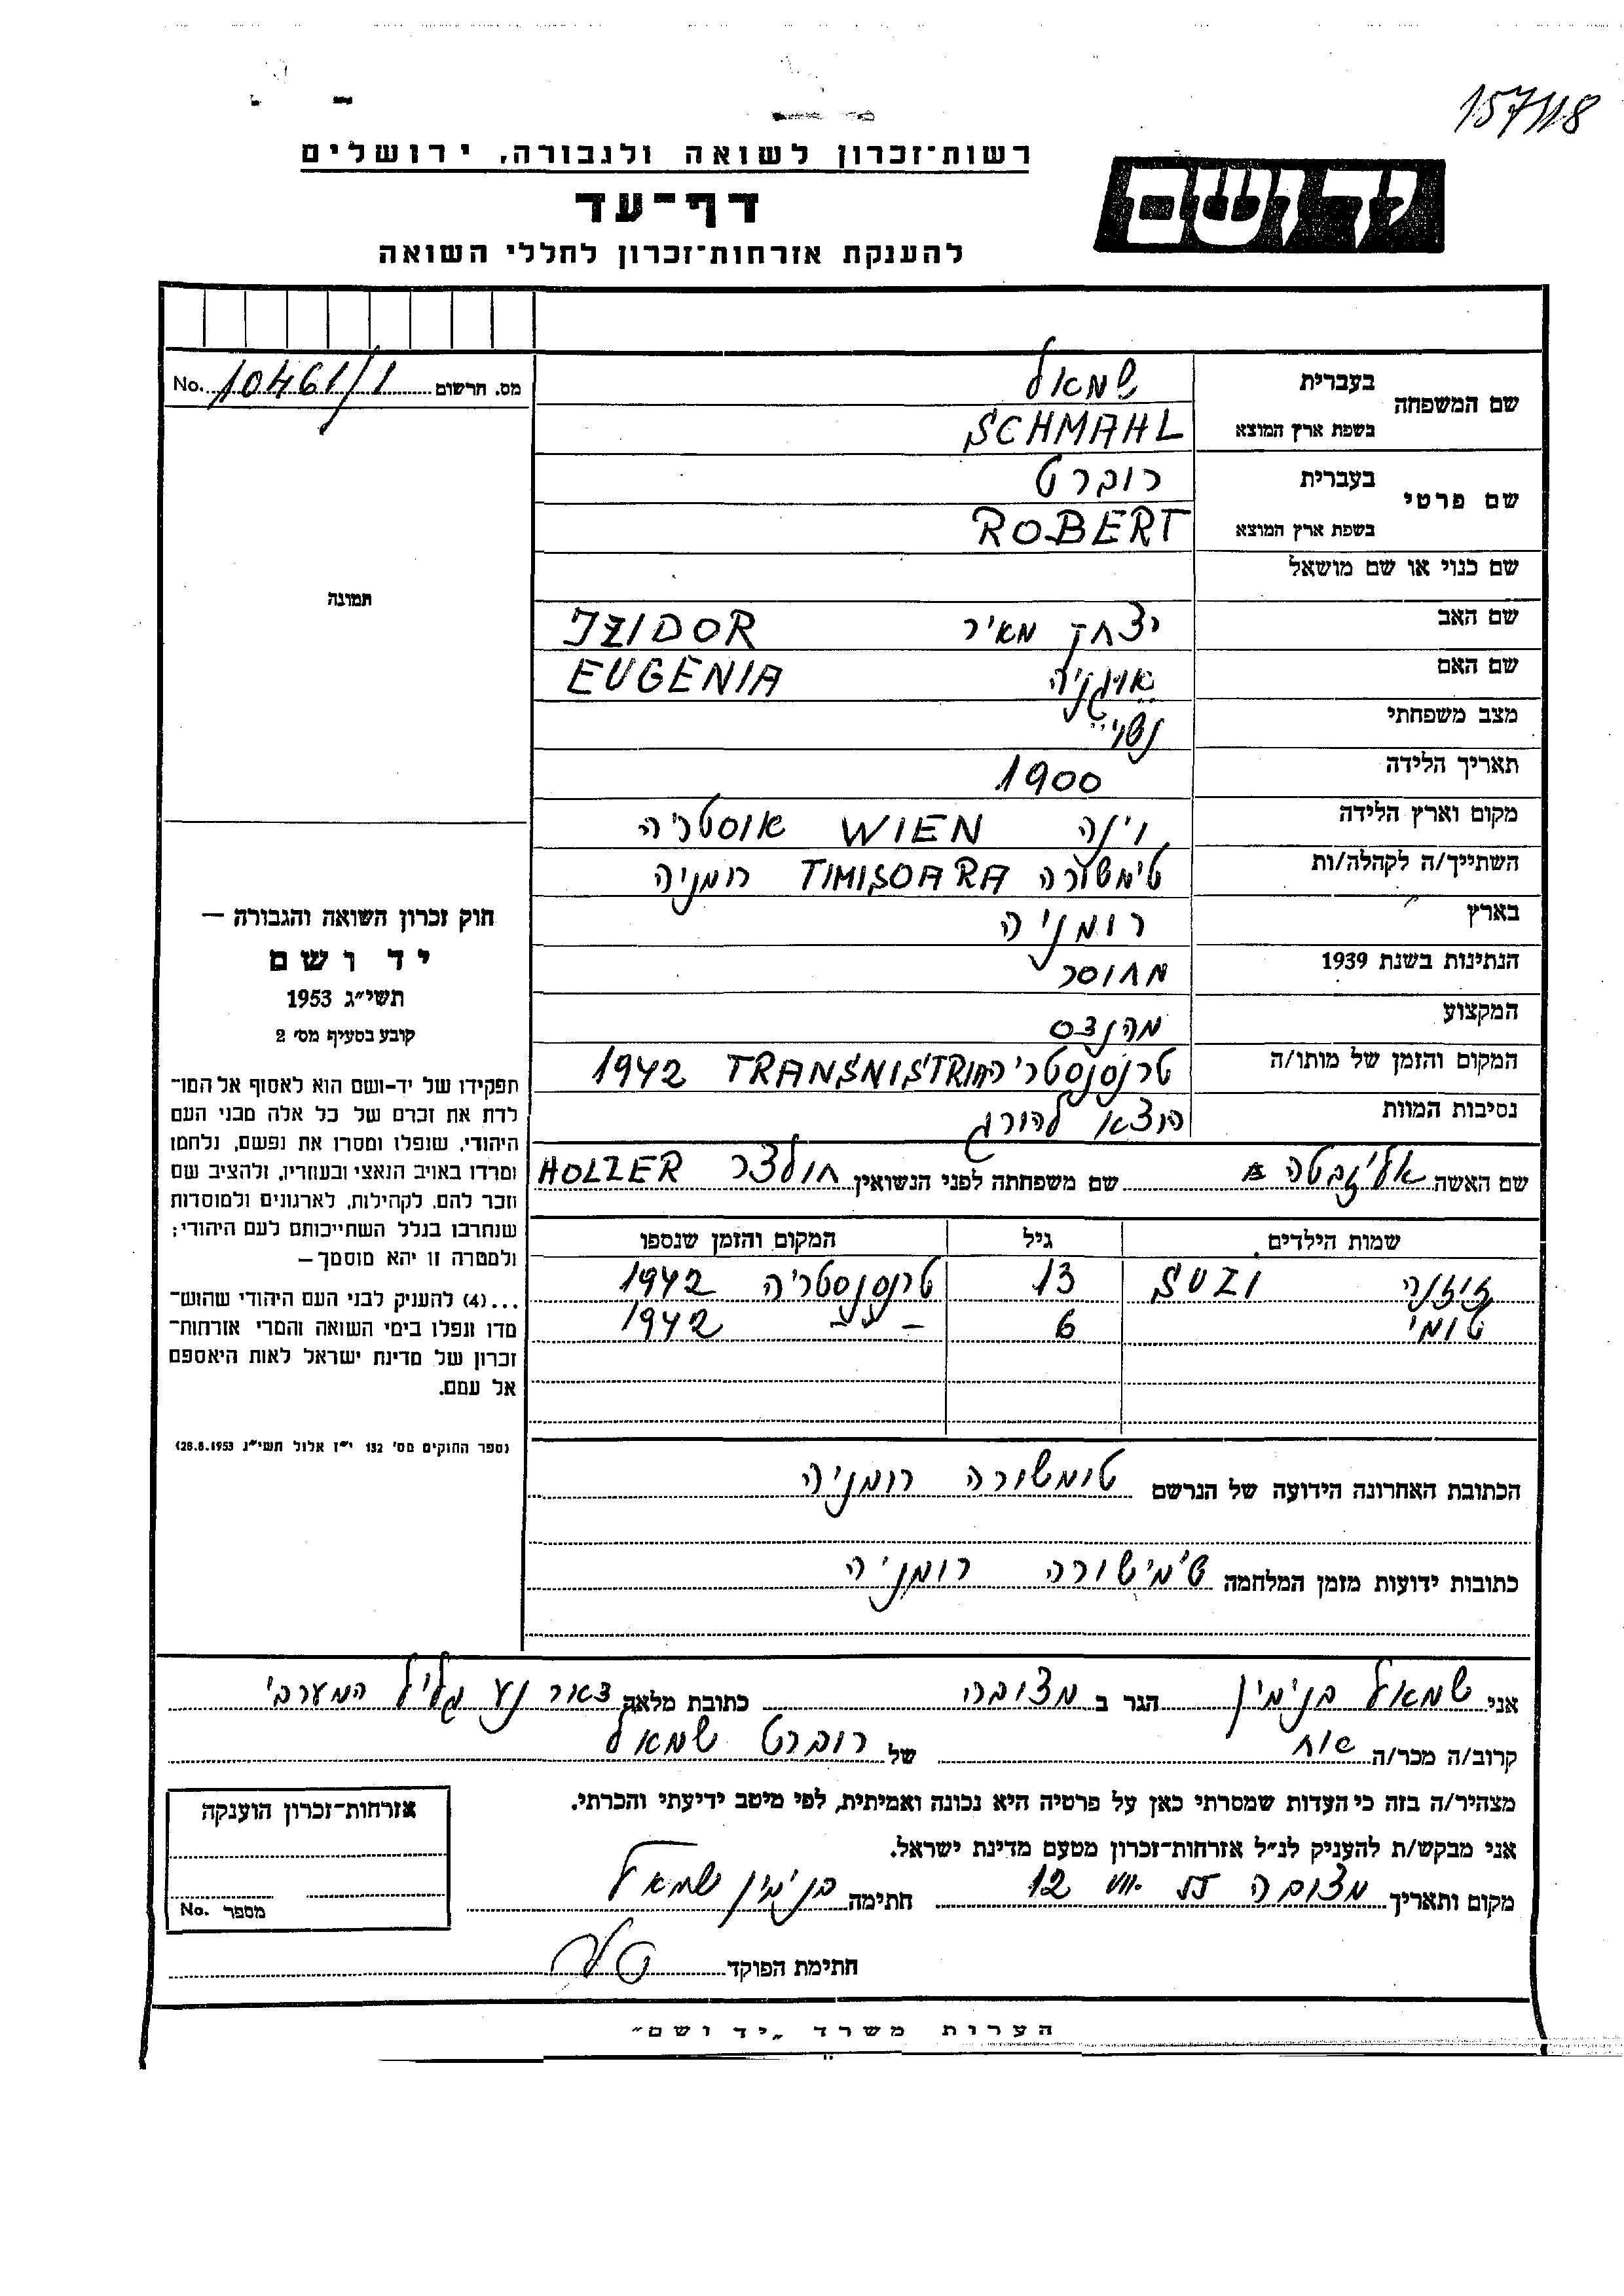 157/118
רשות-זכרון לשואה ולגבורה, ירושלים
יד ושם
דף-עד
להענקת אזרחות-זכרון לחללי השואה
שם המשפחה בעברית שמאל
בשפת ארץ המוצא SCHMAHL
שם פרטי בעברית רוברט
בשפת ארץ המוצא ROBERT
שם כנוי או שם מושאל
שם האב יצחק מאיר IZIDOR
שם האם אויגניה EUGENIA
מצב משפחתי נשוי
תאריך הלידה 1900
מקום וארץ הלידה וינה WIEN אוסטריה
השתייך/ה לקהלה/ות טימשורה TIMISOARA רומניה
בארץ רומניה
הנתינות בשנת 1939 מחוסר
המקצוע מהנדס
המקום והזמן של מותו/ה טרנסנסטריה TRANSNISTRIA 1942
נסיבות המוות הוצא להורג
שם האשה אליזבטה שם משפחתה לפני הנשואין הולצר HOLZER
שמות הילדים גיל המקום והזמן שנספו
זוזנה SUZI 13 טרנסנסטריה 1942
טומי 6 – " – 1942
הכתובת האחרונה הידועה של הנרשם טומשורה רומניה
כתובות ידועות מזמן המלחמה טימישורה רומניה
מס. תרשום No. 10461/1
תמונה
חוק זכרון השואה והגבורה —
יד ושם
תשי״ג 1953
קובע בסעיף מס׳ 2
תפקידו של יד-ושם הוא לאסוף אל המו-
לדת את זכרם של כל אלה מבני העם
היהודי, שנפלו ומסרו את נפשם, נלחמו
ומרדו באויב הנאצי ובעוזריו, ולהציב שם
וזכר להם, לקהילות, לארגונים ולמוסדות
שנחרבו בגלל השתייכותם לעם היהודי;
ולמטרה זו יהא מוסמך —
...(4) להענק לבני העם היהודי שהוש-
מדו ונפלו בימי השואה והמרי אזרחות-
זכרון של מדינת ישראל לאות היאספם
אל עמם.
(ספר החוקים מס׳ 132 י״ז אלול תשי״ג 28.8.1953)
אני שמאל בנימין הגר ב מצובה כתובת מלאה דאר נע גליל המערבי
קרוב/ה מכר/ה אח של רוברט שמאל
מצהיר/ה בזה כי העדות שמסרתי כאן על פרטיה היא נכונה ואמיתית, לפי מיטב ידיעתי והכרתי.
אני מבקש/ת להעניק לנ״ל אזרחות-זכרון מטעם מדינת ישראל.
מקום ותאריך מצובה 12 VIII חתימה בנימין שמאל
חתימת הפוקד
אזרחות-זכרון הוענקה
מספר No.
הערות משרד „יד ושם״